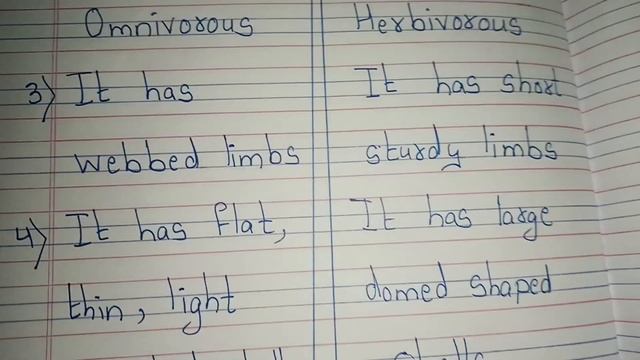 Omnivorous Herbivorous
3) It has It has short
webbed limbs sturdy limbs
4) It has flat, It has large
thin, light domed shaped